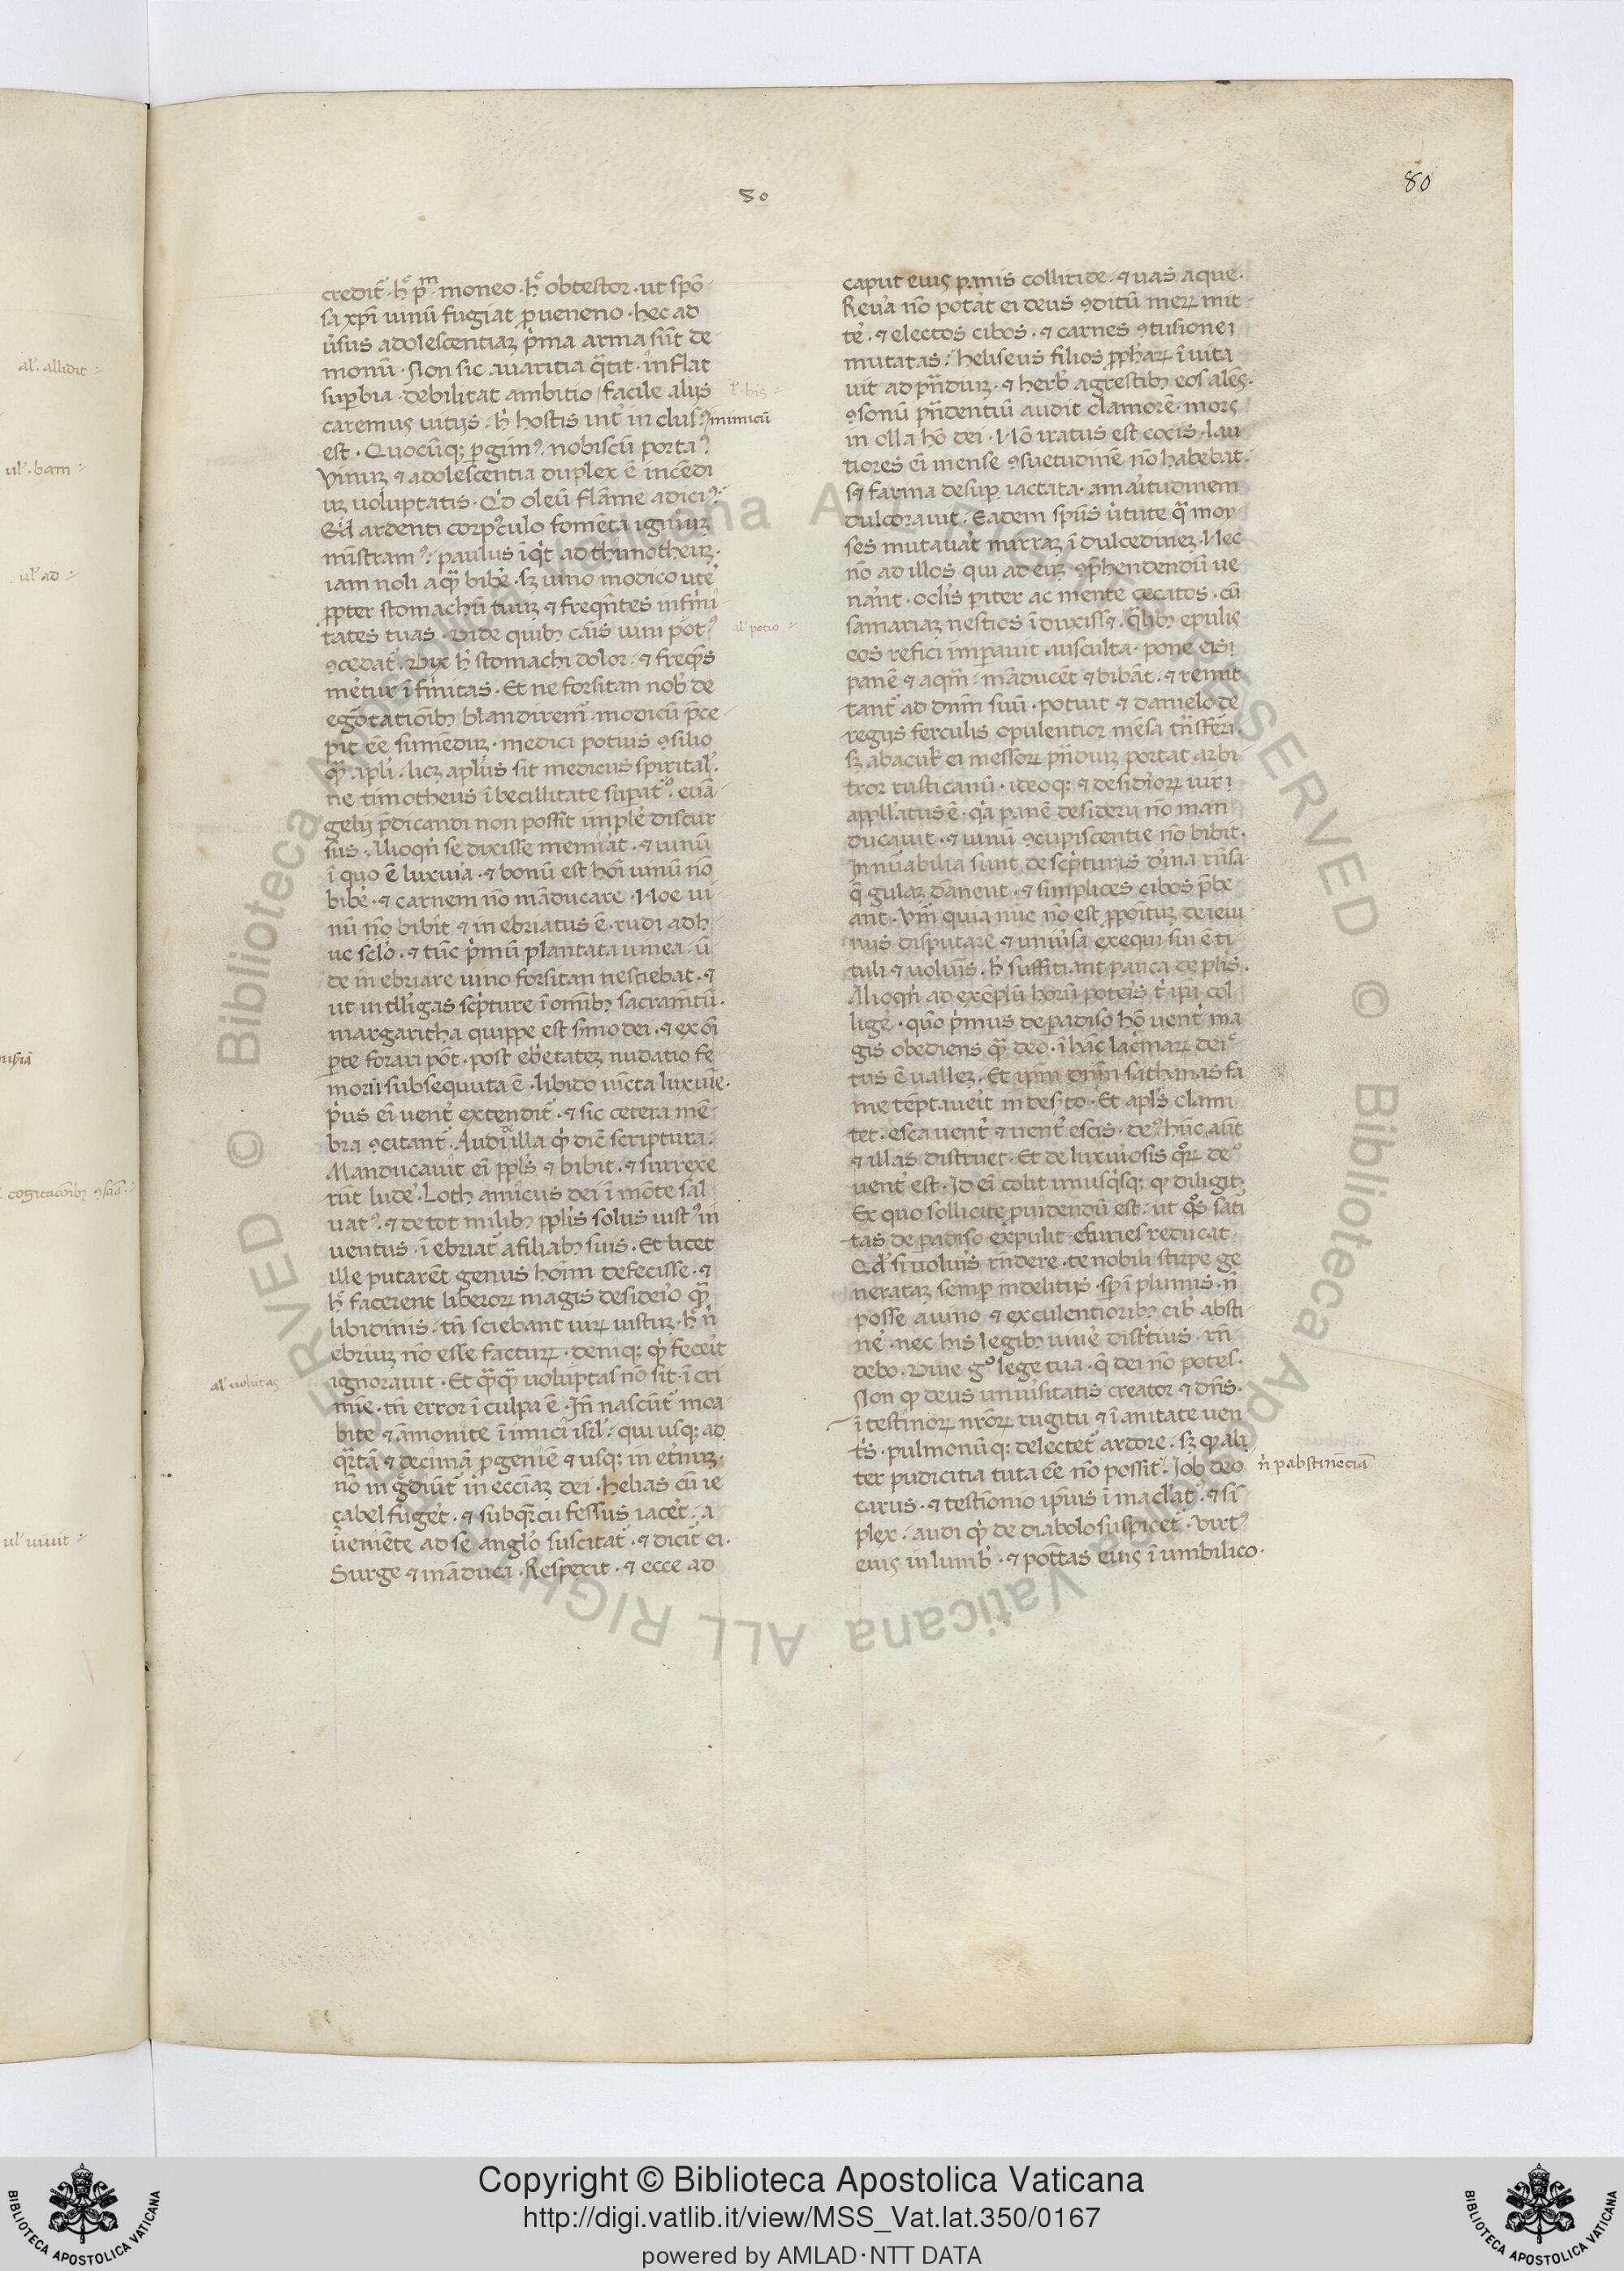 80
80
credit᷑ · h᷑ p᷑m · moneo · h᷑ obtestor · ut spō
sa xp̄i uinū fugiat ꝑ ueneno · hec ad
ũsus adolescentiaꝫ p̾ma arma sūt de
monū · Non sic auaritia q̃tit · inflat
suꝑbia · debilitat ambitio / facile alijs
caremus uitijs · h̾ hostis int᷑ in clusꝰ
est · Quocūqꝫ ꝑgimꝰ · nobiscū porta
vinuꝫ ⁊ adolescentia duplex ē incēdi
uꝫ uoluptatis · Q̾d oleū flāme adicimꝰ
Q̾d ardenti corpꝰculo fomēta igniuꝫ
mīstramꝰ · paulus īq̾t ad thimotheuꝫ ·
iam noli aq̃ bibe᷑ · sꝫ uino modico ute᷑
ꝓpter stomachū tuuꝫ ⁊ freq̄ntes infirmi
tates tuas · Vide quibꝫ cāis uini potꝰ
ꝯcedat᷑ · Vix h̾ stomachi dolor · ⁊ freq̄ns
me᷑tur īfirmitas · Et ne forsitan nob̾ de
egrotationibꝫ blandiremur · modicū p̄ce
pit eē sumēduꝫ · medici potius ꝯsilio
q̃ apl̾i · licꝫ apl̾us sit medicus spirital᷑ ·
ne timotheus ībecillitate suꝑatꝰ · euā
gelij p̄dicandi non posset imple᷑ discur
sus · Alioqn̾ se dixisse meminat · ⁊ uinū
ī quo ē luxuria · ⁊ bonū est hōi uinū nō
bibe᷑ · ⁊ carnem nō māducare · Noe ui
nū nō bibit ⁊ in ebriatus ē · rudi adh
uc sclo̾ · ⁊ tūc p̾mū plantata uinea · ū
de in ebriare uino forsitan nesciebat · ⁊
ut intelligas scp̾ture ī omībꝫ sacramtū ·
margaritha quippe est s̾mo dei · ⁊ ex oī
ꝑte forari pōt · post eb̾etateꝫ nudatio fe
morū subsequuta ē · libido iūcta luxurie ·
p̾us eī uent᷑ extendit᷑ · ⁊ sic cetera mē
bra ꝯcitant᷑ · Audi illa q̾ dic̄ scriptura ·
Manducauit eī ppl̾s ⁊ bibit · ⁊ surrexe
rūt lude᷑ · Loth amicus dei ī mōte sal
uatꝰ · ⁊ de tot milibꝫ ppl̾is solus iustꝰ in
uentus · ī ebriat᷑ a filiabꝫ suis · Et licet
ille putarēt genus hoīm defecisse · ⁊
h᷑ facerent liberoꝝ magis desiderio q̃
libidinis · tn̄ sciebant uiꝝ iustuꝫ · h᷑ n̾
ebriuꝫ nō esse factuꝝ · deniqꝫ q̾ fecerit
ignorauit · Et q̃q̃ uoluptas nō sit ī cri
mīe · tn̄ error ī culpa ē · Īn̄ nascūt᷑ moa
bite ⁊ amonite ī imici isrl̾ · qui usqꝫ ad
q̃rtā ⁊ decimā ꝓgeniē ⁊ usqꝫ in et᷑nuꝫ ·
nō ingrediūt᷑ in eccīaꝫ dei · helias cū ie
çabel fuge᷑t · ⁊ sub q̃rcu fessus iace᷑t · a
ueniēte ad se anglo̾ suscitat᷑ · ⁊ dicit᷑ ei ·
Surge ⁊ māduca · Respexit · ⁊ ecce ad
caput eius panis colliride · ⁊ uas aque ·
Reuera nō potat᷑ ei deus ꝯditū meꝝ mit
te᷑ · ⁊ electos cibos · ⁊ carnes ꝯtusione
mutatas · heliseus filios ꝓphaꝝ īuita
uit ad pn̄diuꝫ · ⁊ herb᷑ agrestibꝫ eos alēs ·
ꝯsonū pn̄dentiū audit clamorē · mors
in olla hō dei · Nō iratus est cocis · lau
tiores eī mense ꝯsuetudinē nō habebat ·
sꝫ farina desuꝑ iactata · amaritudinem
dulcorauit · Eadem spūs u᷑tute q̃ moy
ses mutauat mirraꝫ ī dulcedineꝫ · Nec
nō ad illos qui ad euꝫ ꝯp̄hendendū ue
nāt · ocl̾is ꝑiter ac mente cecatos · cū
samariaꝫ nescios ī duxiss⁊ · q̾libꝫ epulis
eos refici imꝑauit · ausculta · pone eis
panē ⁊ aq̃m · māducēt ⁊ bibāt · ⁊ remit
tant᷑ ad dn̄m suū · potuit ⁊ danielo de
regijs ferculis opulentior mēsa trn̄sferri ·
sꝫ abacuk ei messoꝝ pn̄diuꝫ portat arbi
tror rusticanū · ideoqꝫ ⁊ desid᷑ioꝝ uir
appll̾atus ē · q̾a panē desiderij nō man
ducauit · ⁊ uinū ꝯcupiscentie nō bibit ·
Innūabilia sunt de scp̾turis diuina rn̄sa
q̄ gulaꝫ dānent · ⁊ simplices cibos p̄be
ant · Vm̄ quia nūc nō est ꝓpoituꝫ de ieiu
nijs disputare ⁊ uniu᷑sa exequi sui ē ti
tuli ⁊ uoluīs · h̾ suffitiant pauca de pl̾is ·
Alioqn̾ ad exēplū horū poteris t̾ ipi col
lige᷑ · quō p̾mus de ꝑadiso hō uent᷑ ma
gis obediens q̃ deo · ī hāc lacrimaꝝ dei
tus ē ualleꝫ · Et ipm̄ dn̄m sathanas fa
me tēptauerit in des᷑to · Et apl̾s clami
tet · esca uent᷑ ⁊ uent᷑ escis · deꝰ hūc aūt
⁊ illas distruet · Et de luxuriosis q̾ꝝ deꝰ
uent᷑ est · Id eī colit unusq̾sqꝫ qꝫ diligit ·
Ex quo sollicite ꝓuidendū est · ut q̾s sati
tas de ꝑadiso expulit · esuries reducat ·
Qd̾ si uolu᷑is rn̄dere · te nobili stirpe ge
nerataꝫ semꝑ in delitijs · sꝑ ī plumis · n̄
posse a uino ⁊ exculentioribꝫ cib᷑ absti
ne᷑ · nec his legibꝫ uiue᷑ distr̾tius · rn̄
debo · Viue g̾ lege tua · q̄ dei nō potes ·
Non qꝫ deus uniu᷑sitatis creator ⁊ dn̄s ·
ī testinoꝝ nr̄oꝝ rugitu ⁊ ī anitate uen
t᷑s · pulmonūqꝫ delectet᷑ ardore · sꝫ qꝫ ali
ter pudicitia tuta eē nō possit · Iob deo
carus · ⁊ testimonio ipīus ī maclatꝰ · ⁊ si
plex · audi q̾ de diabolo suspicet᷑ · Virtꝰ
eius in lumb᷑ · ⁊ potestas eius ī umbilico ·
al᷑ · allidit
ul᷑ · bam
ul᷑ ad
cogitacōibꝫ ꝯsciā
ul᷑ uiuit
inimicū
ul᷑ potio
al᷑ uolūtas
n̾ ꝑ abstinēciā
Copyright © Biblioteca Apostolica Vaticana
http://digi.vatlib.it/view/MSS_Vat.lat.350/0167
powered by AMLAD·NTT DATA
BIBLIOTECA APOSTOLICA VATICANA
BIBLIOTECA APOSTOLICA VATICANA
© Biblioteca Apostolica Vaticana ALL RIGHTS RESERVED © Biblioteca Apostolica Vaticana ALL RIGHTS RESERVED